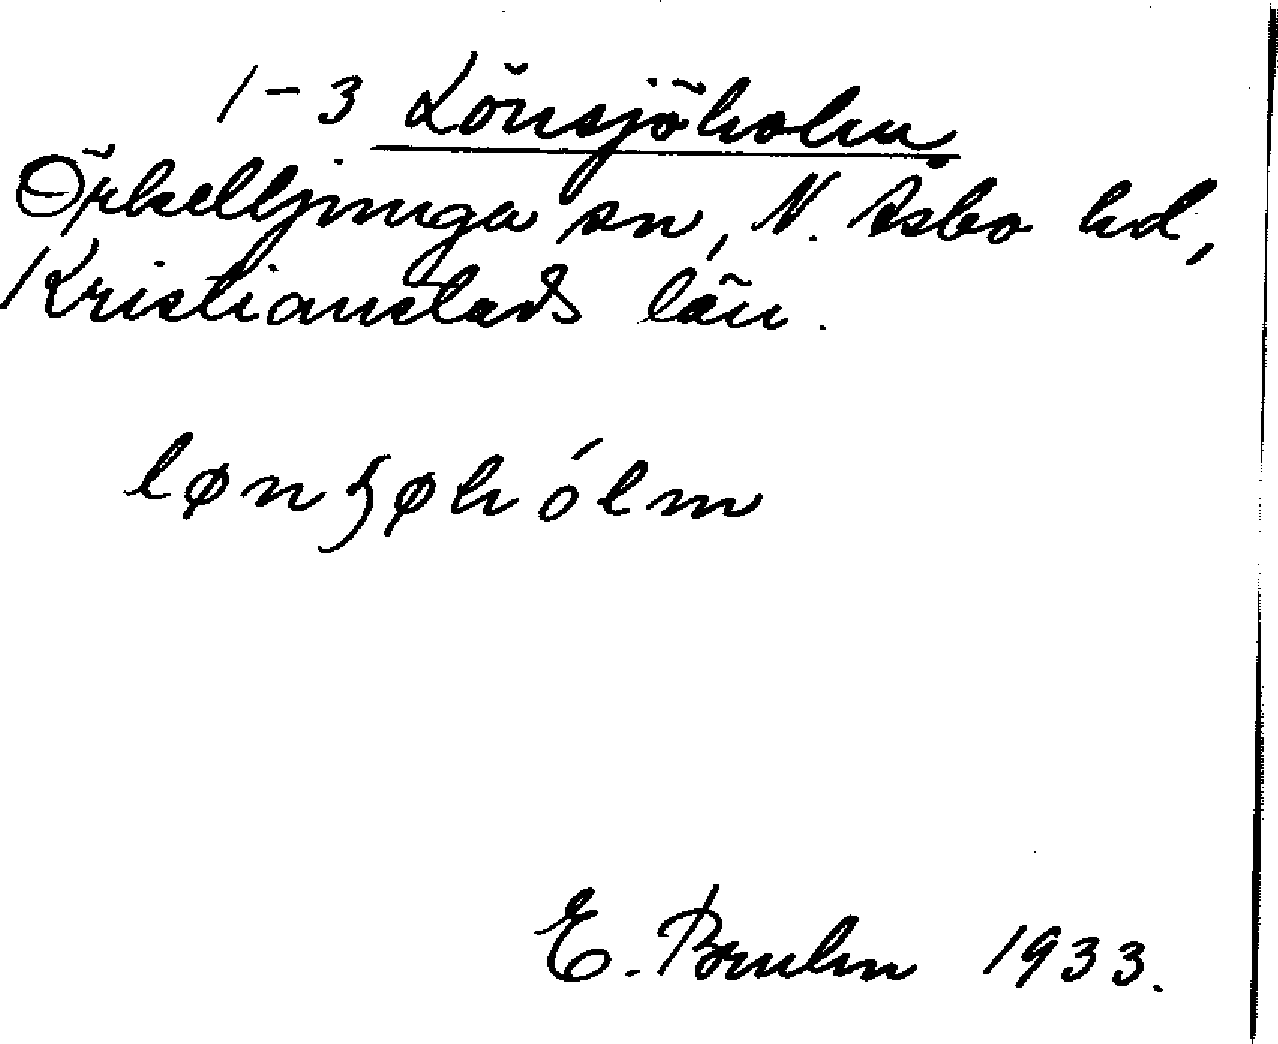 1-3 Lönsjöholm
Örkelljunga sn, N. Åsbo hd,
Kristianstads län.
lønʒøhólm
E. Bruhn 1933.